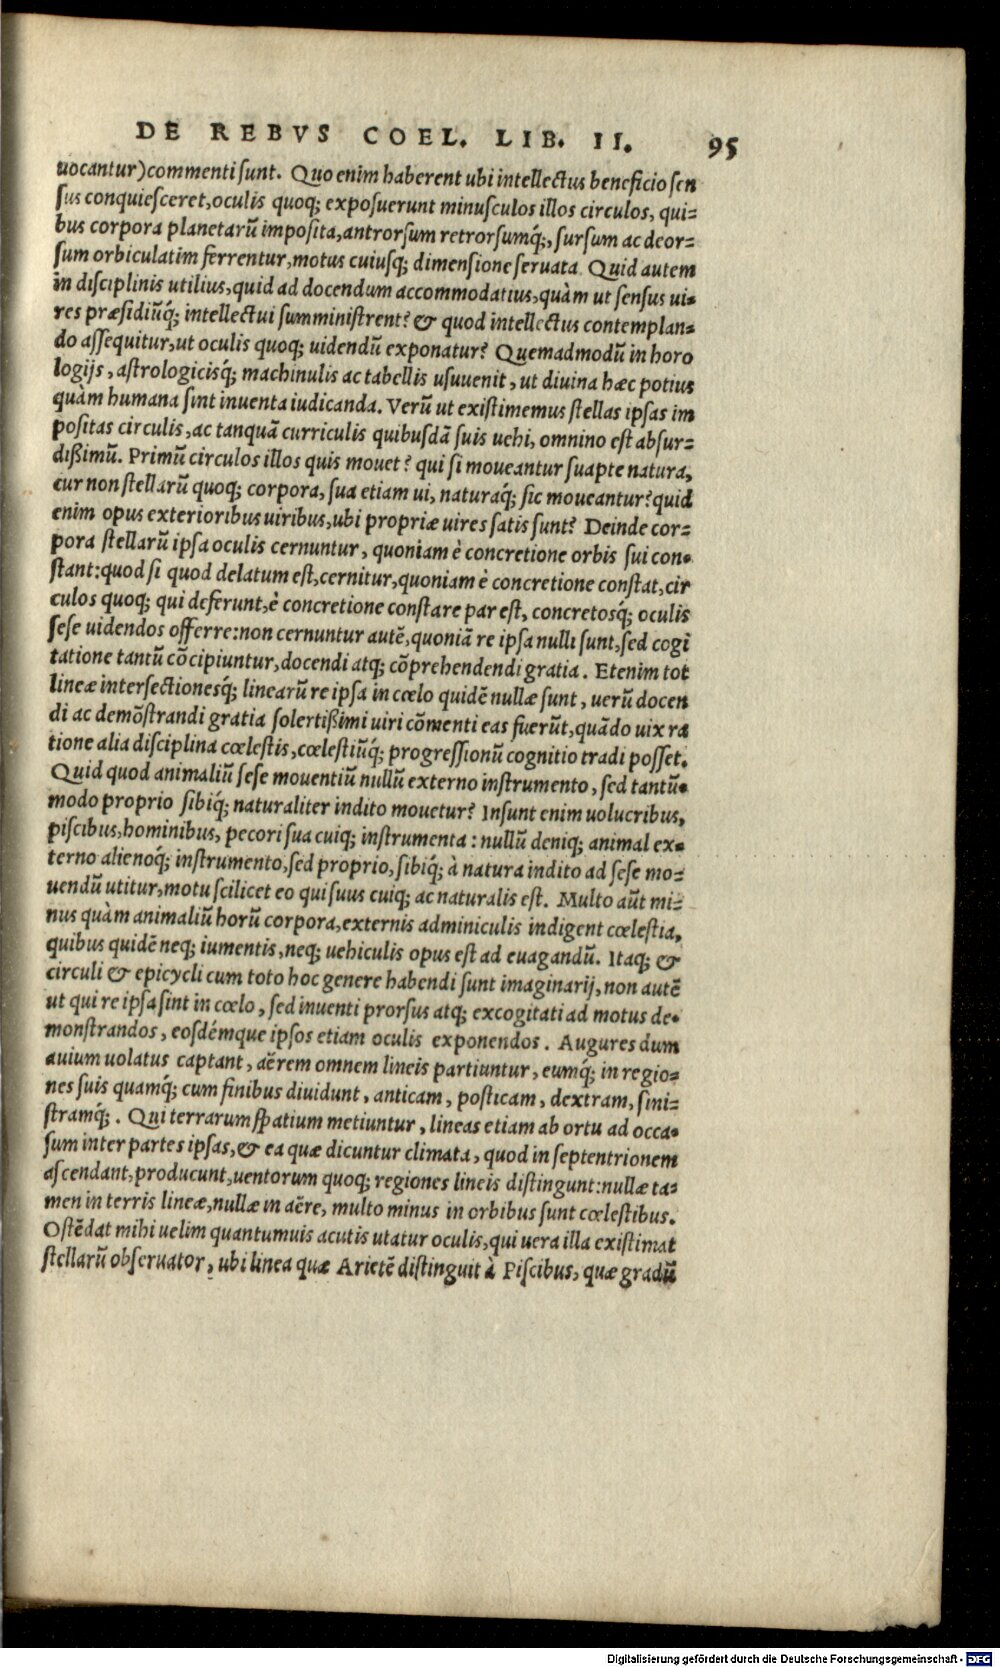 DE REBVS COEL. LIB. II. 95
uocantur) commenti sunt. Quo enim haberent ubi intellectus beneficio sen
sus conquiesceret, oculis quoq; exposuerunt minusculos illos circulos, qui-
bus corpora planetarũ imposita, antrorsum retrorsumq́;, sursum ac deor-
sum orbiculatim ferrentur, motus cuiusq; dimensione seruata. Quid autem
in disciplinis utilius, quid ad docendum accommodatius, quàm ut sensus ui-
res præsidiũq́; intellectui sumministrent? & quod intellectus contemplan-
do assequitur, ut oculis quoq; uidendũ exponatur? Quemadmodũ in horo
logijs, astrologicisq́; machinulis ac tabellis usuuenit, ut diuina hæc potius
quàm humana sint inuenta iudicanda. Verũ ut existimemus stellas ipsas im
positas circulis, ac tanquã curriculis quibusdã suis uehi, omnino est absur-
dißimũ. Primũ circulos illos quis mouet? qui si moueantur suapte natura,
cur non stellarũ quoq; corpora, sua etiam ui, naturaq́; sic moueantur? quid
enim opus exterioribus uiribus, ubi propriæ uires satis sunt? Deinde cor-
pora stellarũ ipsa oculis cernuntur, quoniam è concretione orbis sui con-
stant: quod si quod delatum est, cernitur, quoniam è concretione constat, cir
culos quoq; qui deferunt, è concretione constare par est, concretosq́; oculis
sese uidendos offerre: non cernuntur autẽ, quoniã re ipsa nulli sunt, sed cogi
tatione tantũ cõcipiuntur, docendi atq; cõprehendendi gratia. Etenim tot
lineæ intersectionesq́; linearũ re ipsa in cœlo quidẽ nullæ sunt, uerũ docen
di ac demõstrandi gratia solertißimi uiri cõmenti eas fuerũt, quãdo uix ra
tione alia disciplina cœlestis, cœlestiũq́; progressionũ cognitio tradi posset.
Quid quod animaliũ sese mouentiũ nullũ externo instrumento, sed tantũ-
modo proprio sibiq́; naturaliter indito mouetur? Insunt enim uolucribus,
piscibus, hominibus, pecori sua cuiq; instrumenta: nullũ deniq; animal ex-
terno alienoq́; instrumento, sed proprio, sibiq́; à natura indito ad sese mo-
uendũ utitur, motu scilicet eo qui suus cuiq; ac naturalis est. Multo aũt mi-
nus quàm animaliũ horũ corpora, externis adminiculis indigent cœlestia,
quibus quidẽ neq; iumentis, neq; uehiculis opus est ad euagandũ. Itaq; &
circuli & epicycli cum toto hoc genere habendi sunt imaginarij, non autẽ
ut qui re ipsa sint in cœlo, sed inuenti prorsus atq; excogitati ad motus de-
monstrandos, eosdémque ipsos etiam oculis exponendos. Augures dum
auium uolatus captant, aërem omnem lineis partiuntur, eumq́; in regio-
nes suis quamq́; cum finibus diuidunt, anticam, posticam, dextram, sini-
stramq́;. Qui terrarum spatium metiuntur, lineas etiam ab ortu ad occa-
sum inter partes ipsas, & ea quæ dicuntur climata, quod in septentrionem
ascendant, producunt, uentorum quoq; regiones lineis distingunt: nullæ ta-
men in terris lineæ, nullæ in aëre, multo minus in orbibus sunt cœlestibus.
Ostẽdat mihi uelim quantumuis acutis utatur oculis, qui uera illa existimat
stellarũ obseruator, ubi linea quæ Arietẽ distinguit à Piscibus, quæ gradũ
Digitalisierung gefördert durch die Deutsche Forschungsgemeinschaft - DFG